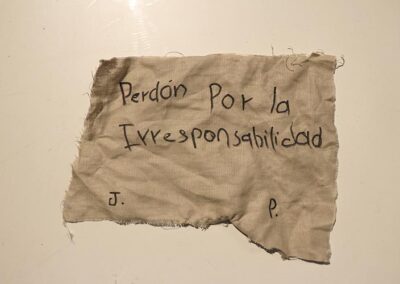 Perdón Por la
Irresponsabilidad
J. P.